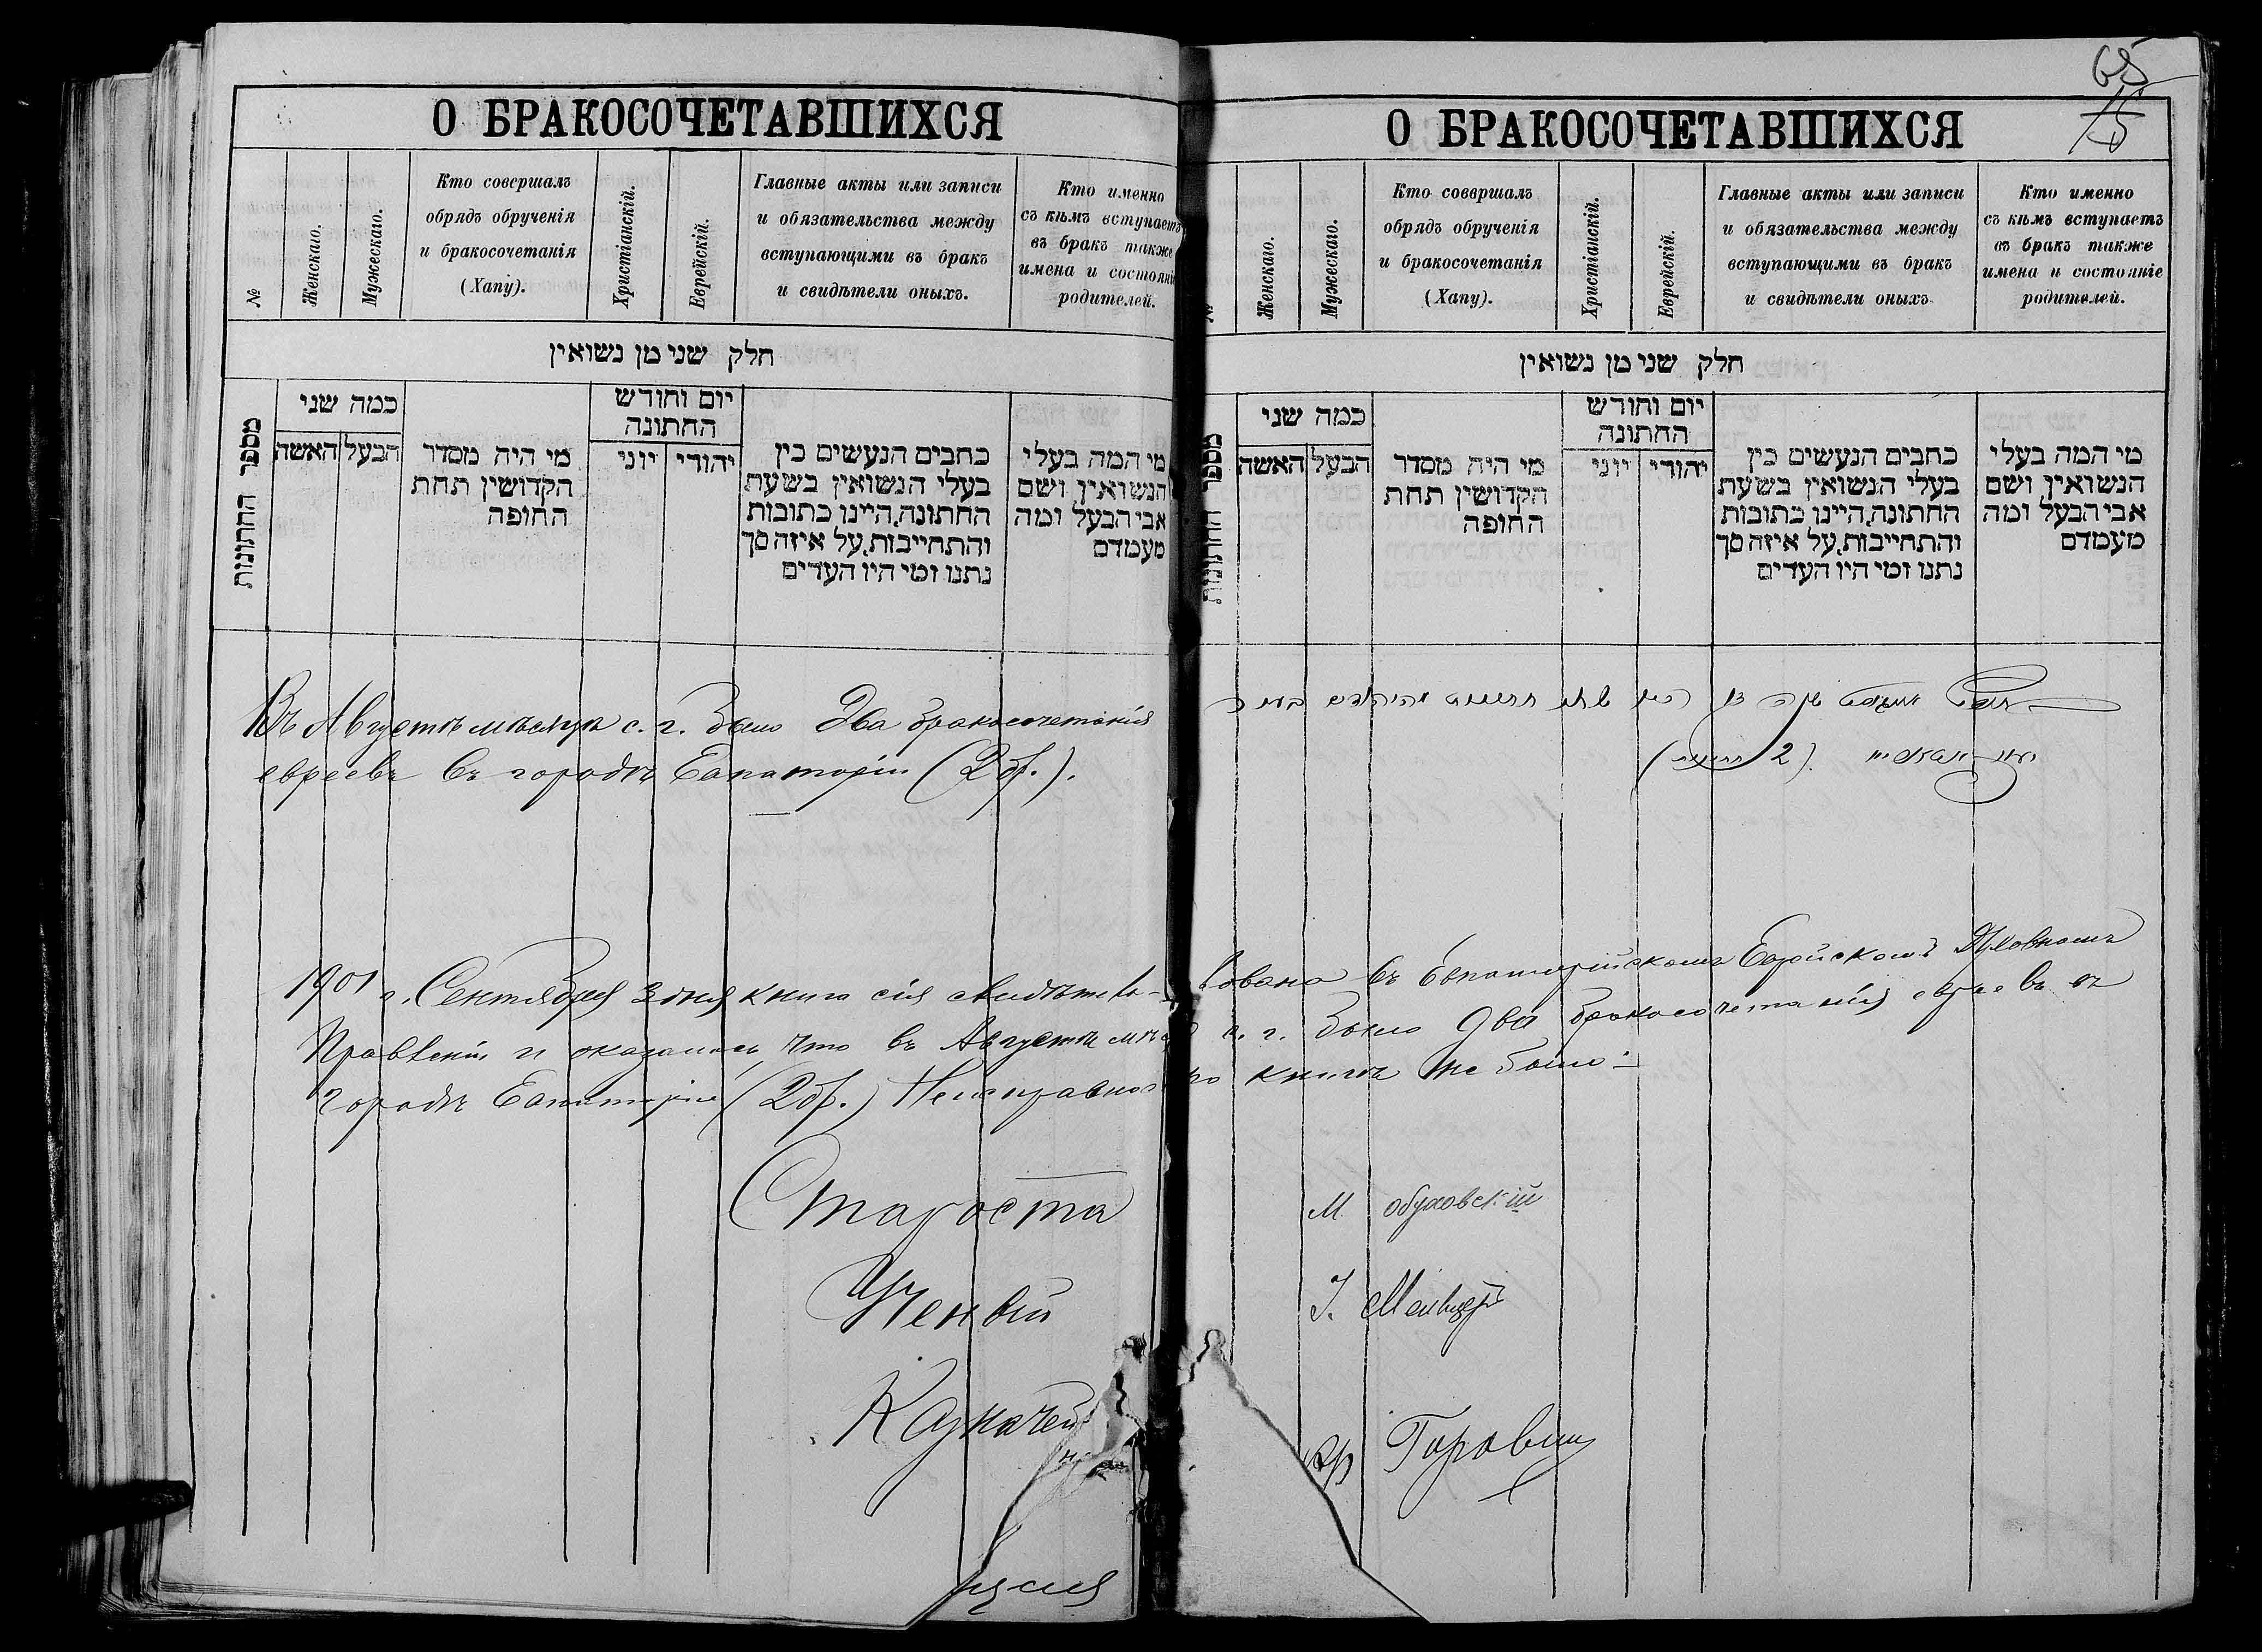 О БРАКОСОЧЕТАВШИХСЯ
№
Женскаго.
Мужескаго.
Кто совершалъ
обрядъ обрученія
и бракосочетанія
(Хапу).
Христіанскій.
Еврейскій.
Главные акты или записи
и обязательства между
вступающими въ бракъ
и свидѣтели оныхъ.
Кто именно
съ кѣмъ вступаетъ
въ бракъ также
имена и состояніе
родителей.
חלק שני מן נשואין
מספר החתונות
כמה שני
הבעל האשה
מי היה מסדר
הקדושין תחת
החופה
יום וחודש
החתונה
יהודי יוני
כתבים הנעשים בין
בעלי הנשואין בשעת
החתונה, היינו כתובות
והתחייבות, על איזה סך
נתנו ומי היו העדים
מי המה בעלי
הנשואין ושם
אבי הבעל ומה
מעמדם
Въ Августѣ мѣсяцѣ с. г. было два бракосочетанія
евреевъ въ городѣ Евпаторіи (2 бр.).
1901 г. Сентября 3 дня книга сія свидѣтель-
Правленіи и оказалось, что въ Августѣ мѣс
городѣ Евпаторіи (2 бр.) Неисправнос
Староста
Ученый
Казначей
65
15
О БРАКОСОЧЕТАВШИХСЯ
№
Женскаго.
Мужескаго.
Кто совершалъ
обрядъ обрученія
и бракосочетанія
(Хапу).
Христіанскій.
Еврейскій.
Главные акты или записи
и обязательства между
вступающими въ бракъ
и свидѣтели оныхъ
Кто именно
съ кѣмъ вступаетъ
въ бракъ также
имена и состояніе
родителей.
חלק שני מן נשואין
מספר החתונות
כמה שני
הבעל האשה
מי היה מסדר
הקדושין תחת
החופה
יום וחודש
החתונה
יהודי יוני
כתבים הנעשים בין
בעלי הנשואין בשעת
החתונה, היינו כתובות
והתחייבות, על איזה סך
נתנו ומי היו העדים
מי המה בעלי
הנשואין ושם
אבי הבעל ומה
מעמדם
ствована въ Евпаторійскомъ Еврейскомъ Духовномъ
с. г. было два бракосочетанія евреевъ въ
по книгѣ не было
М Обуховскій
І.
Горовиц